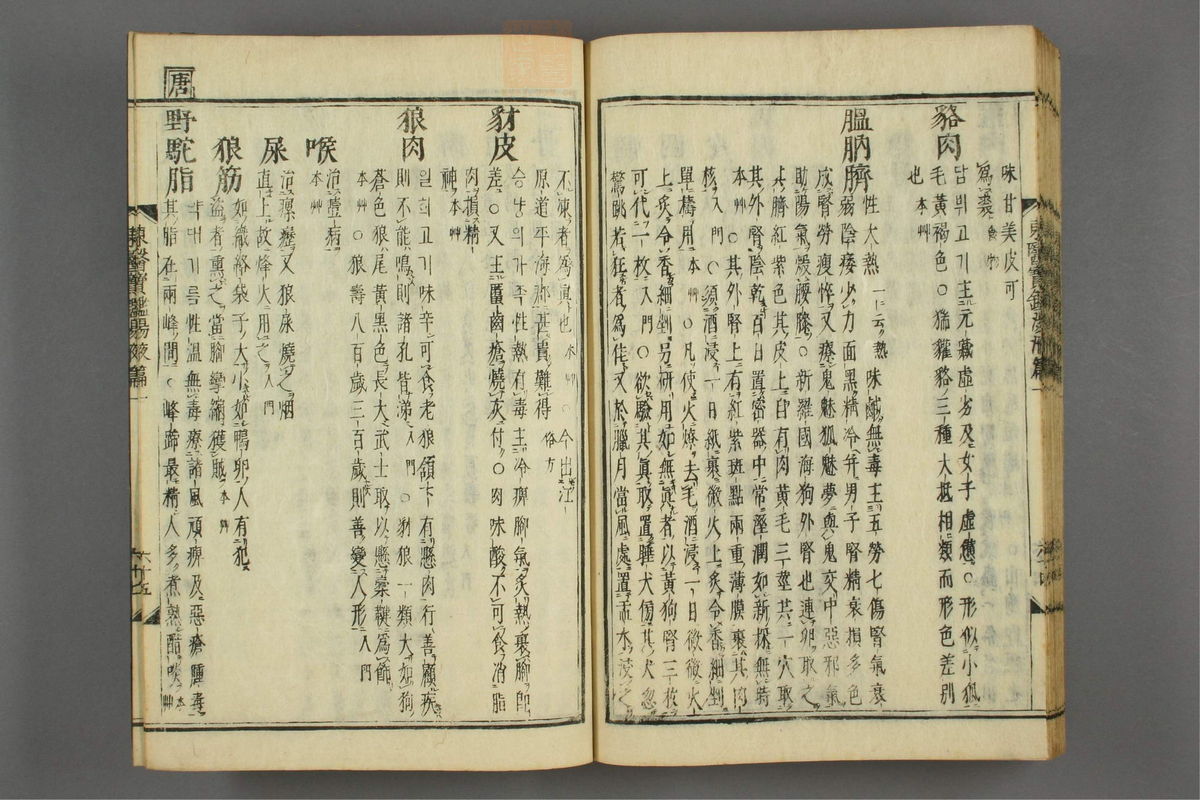 味甘美皮可
爲裘 食物
貉肉 담뵈고기主元藏虛劣及女子虛憊○形似小狐
毛黃褐色○猯貛貉三種大抵相類而形色差別
也 本艸
膃肭臍 性大熱 一云熱 味鹹無毒主五勞七傷腎氣衰
弱陰痿少力面黑精冷幷男子腎精衰損多色
成腎勞瘦悴又療鬼魅狐魅夢與鬼交中惡邪氣
助陽氣煖腰膝○新羅國海狗外腎也連卵取之
其臍紅紫色其皮上自有肉黃毛三莖共一穴取
其外腎陰乾百日置密器中常溼潤如新採無時
本艸 ○其外腎上有紅紫斑點兩重薄膜裹其肉
核 入門 ○須酒浸一日紙裹微火上炙令香細剉
單擣用 本艸 ○凡使火燎去毛酒浸一日微微火
上炙令香細剉另硏用如無眞者以黃狗腎三枚
可代一枚 入門 ○欲驗其眞取置睡犬傍其犬忽
驚跳若狂者爲佳又於臘月當風處置盂水浸之
不凍者爲眞也 本艸 ○今出江
原道平海郡甚貴難得 俗方
豺皮 승냥의가족性熱有毒主冷痺脚氣炙熱裹脚卽
差○又主𧏾齒瘡燒灰付○肉味酸不可食消脂
肉損精
神 本艸
狼肉 일희고기味辛可食老狼頷下有懸肉行善顧疾
則不能鳴則諸孔皆涕 入門 ○豺狼一類大如狗
蒼色狼尾黃黑色長大武士取以懸櫜鞬爲飾
本艸 ○狼壽八百歲三百歲則善變人形 入門
喉 治噎病
本艸
屎 治瘰癧又狼屎燒之烟
直上故烽火用之 入門
狼筋 如織絡袋子大小如鴨卵人有犯
盜者熏之當脚攣縮獲賊 本艸
唐
野駝脂 약대기름性溫無毒療諸風頑痺及惡瘡腫毒
其脂在兩峰間○峰蹄最精人多煮熟醋啖 本艸
東醫寶鑑湯液篇一
東醫寶鑑湯液篇一